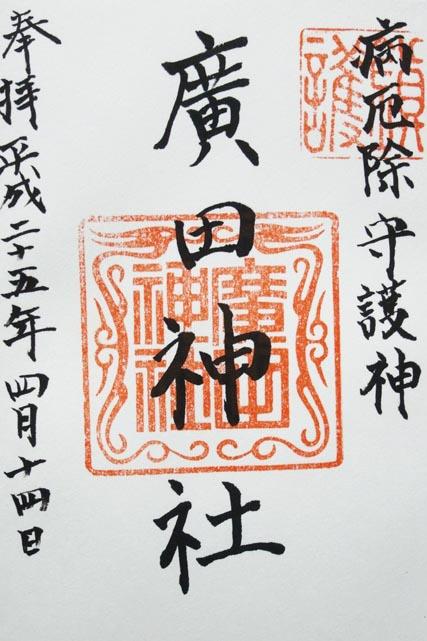 病厄除守護神
廣田神社
廣田
神社
奉拝 平成二十五年 四月十四日